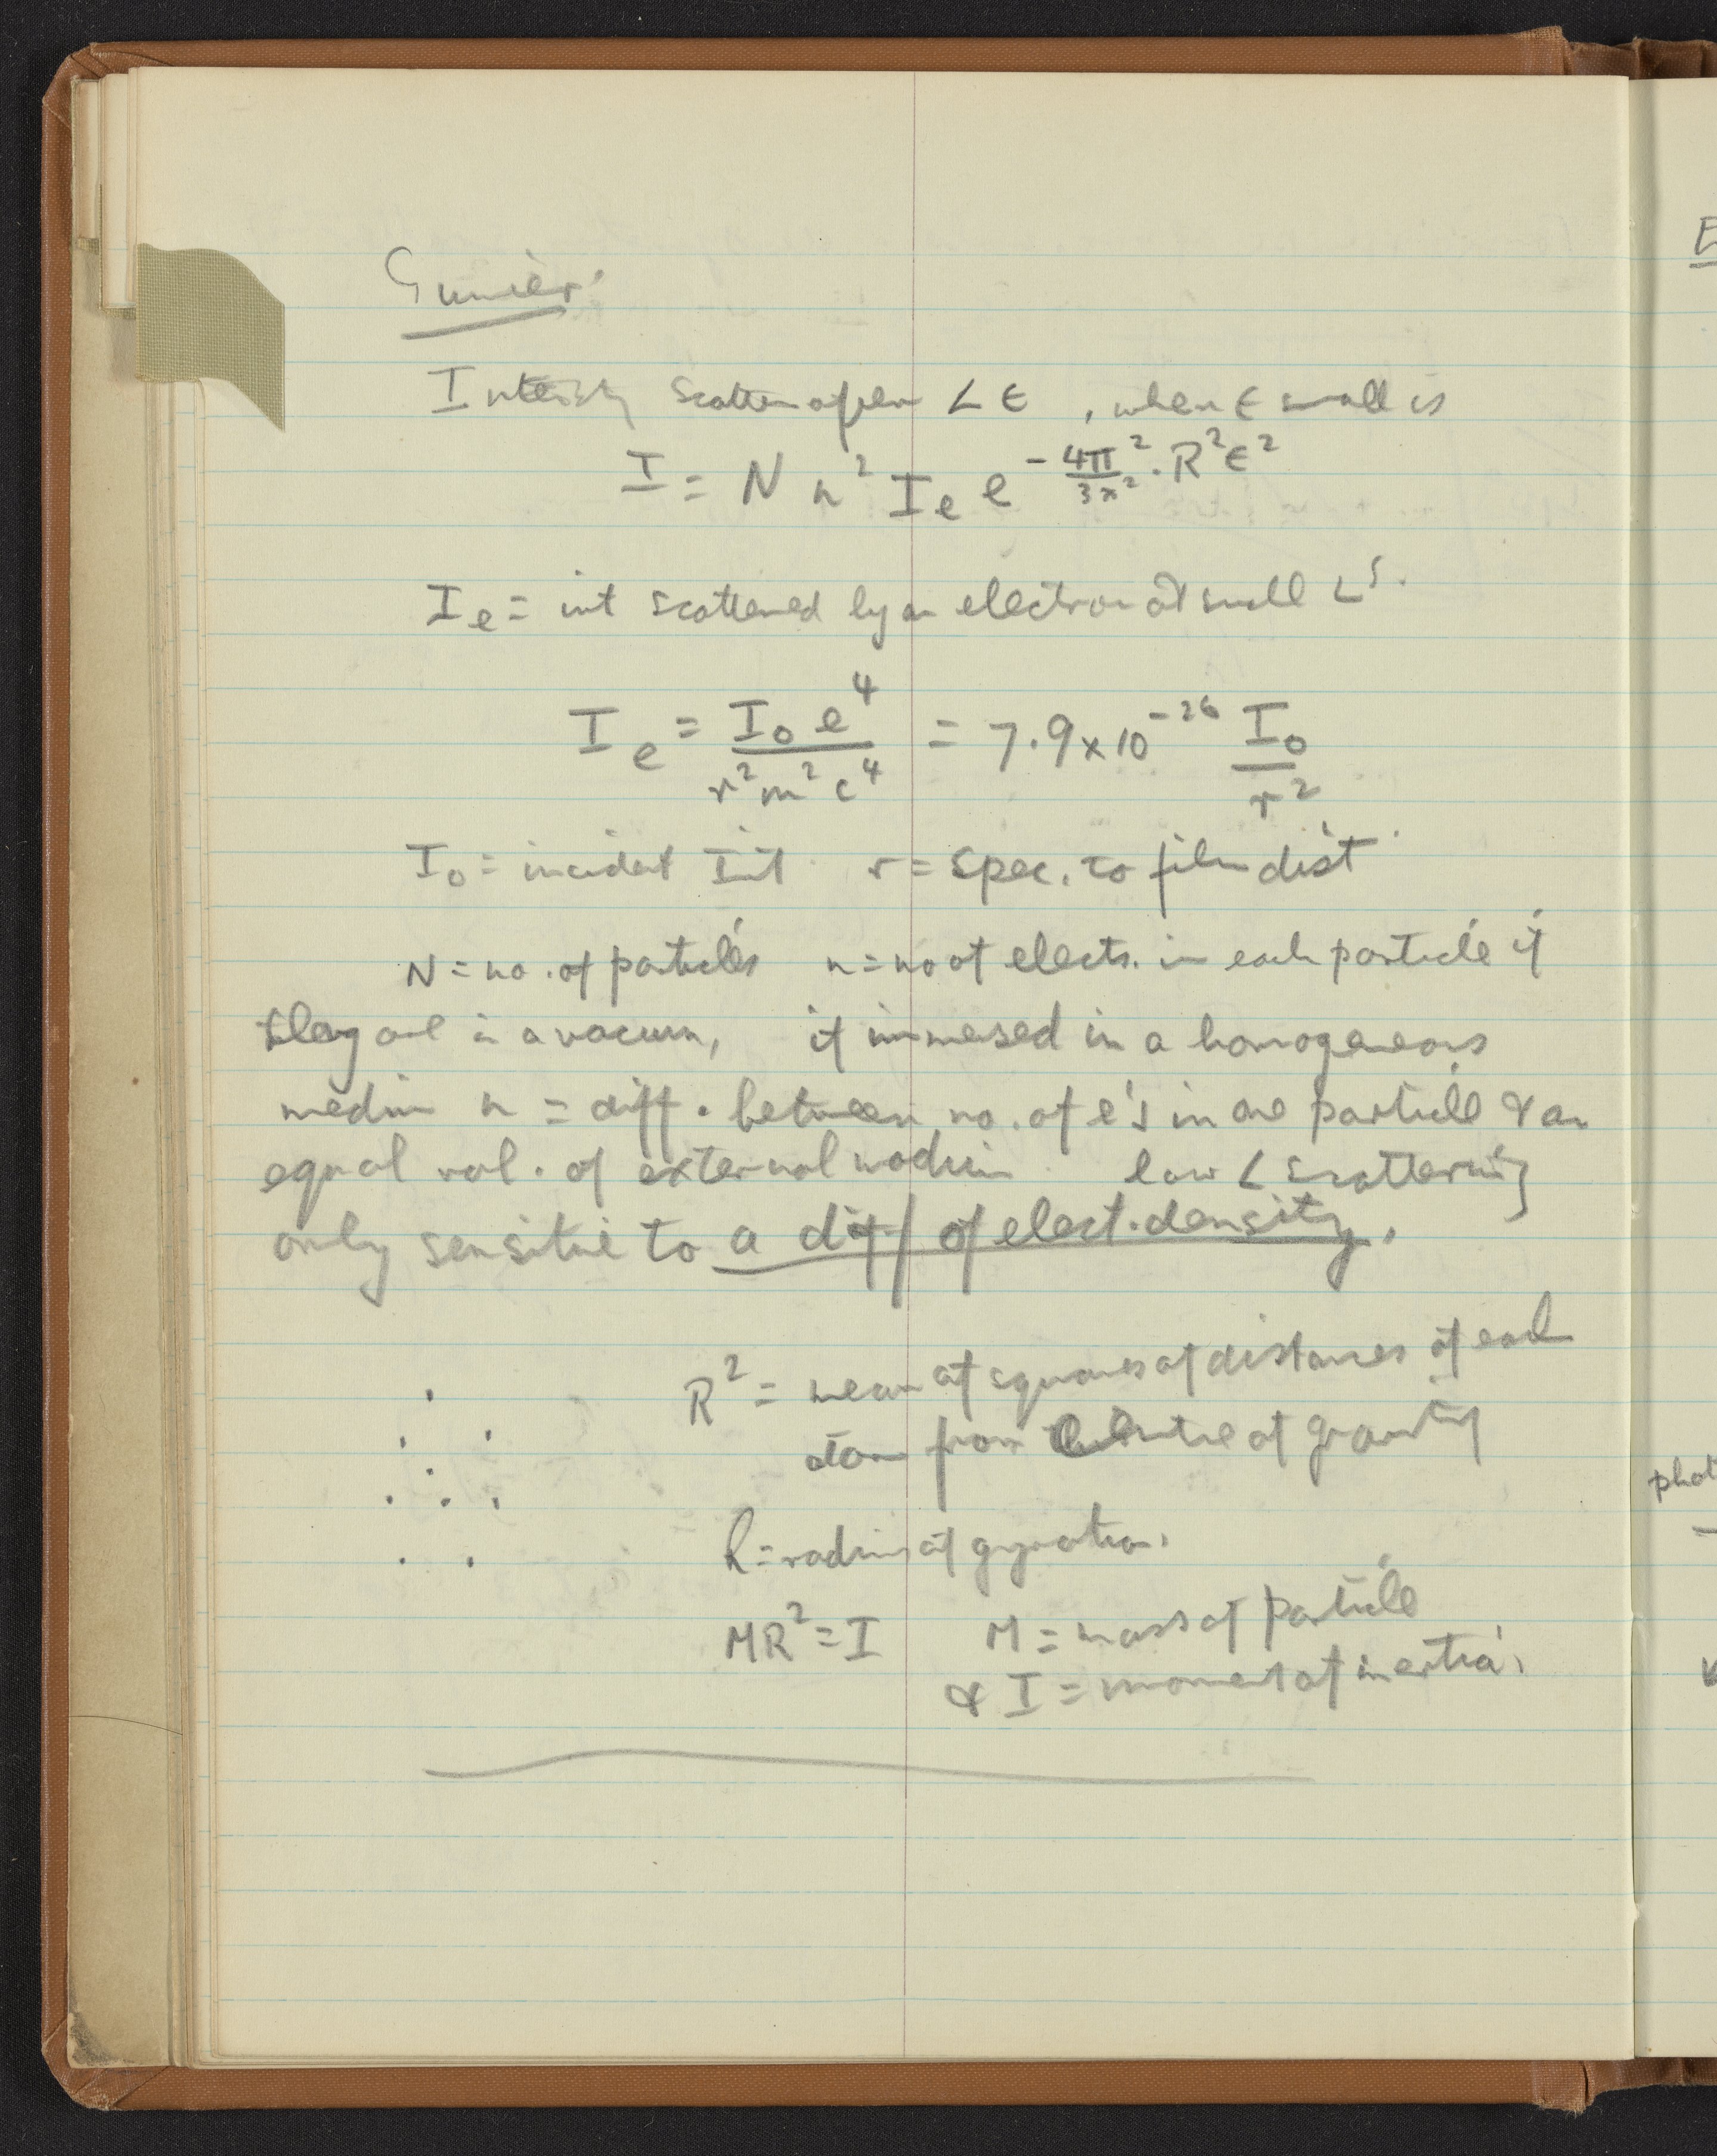 Gunier.
Intensity Scatter ∠ ϵ , when ϵ small is
I = N n² Iₑ e^{-4π²/3λ² · R²ϵ²}
Iₑ = int scattered by an electron at small ∠ˢ.
Iₑ = I₀ e⁴ / r²m²c⁴ = 7.9 × 10⁻²⁶ I₀ / r²
I₀ = incident Int r = spec. to film dist
N = no. of particles n = no of elects. in each particle if
they are in a vacuum, if immersed in a homogeneous
medium n = diff. between no. of e's in one particle & an
equal vol. of external medium low ∠ scattering
only sensitive to a diff of elect. density.
R² = mean of squares of distances of each
atom from centre of gravity
R = radius of gyration.
MR² = I M = mass of particle
& I = moment of inertia.
E
phot